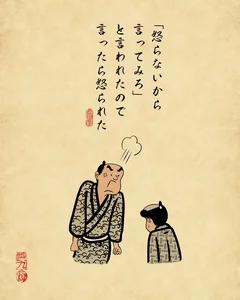 「怒らないから
言ってみろ」
と言われたので
言ったら怒られた